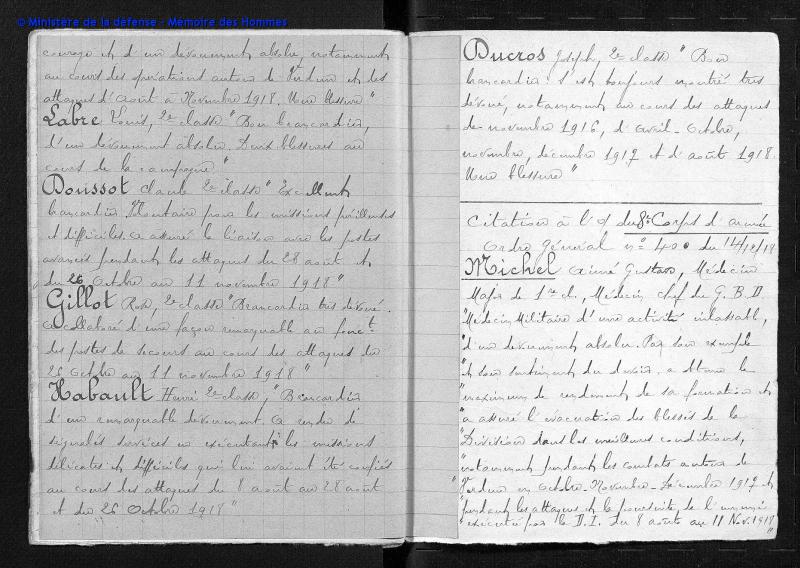 © Ministère de la défense - Mémoire des Hommes
courage et d'un dévouement absolu, notamment
au cours des opérations autour de Verdun et des
attaques d'Août à Novembre 1918. Une blessure"
Labre Louis, 2e classe "Bon brancardier,
d'un dévouement absolu. Deux blessures au
cours de la campagne"
Doussot Claude 2e classe "Excellent
brancardier. Volontaire pour les missions périlleuses
et difficiles. A assuré la liaison avec les postes
avancés pendant les attaques du 28 août et
du 26 Octobre au 11 novembre 1918"
Gillot 2e classe "Brancardier très dévoué.
A collaboré d'une façon remarquable au fonct
des postes de secours au cours des attaques du
26 Octobre au 11 novembre 1918"
Habault Henri 2e classe, "Brancardier
d'un remarquable dévouement. A rendu de
signalés services en exécutant les missions
délicates et difficiles qui lui avaient été confiées
au cours des attaques du 8 août au 28 août
et du 26 Octobre 1918"
Ducros Joseph, 2e classe "Bon
brancardier s'est toujours montré très
dévoué, notamment au cours des attaques
de novembre 1916, d'avril - Octobre,
novembre, décembre 1917 et d'août 1918.
Une blessure"
Citation à l'O du 8e Corps d'armée
Ordre général n° 400 du 14/12/18
Michel Aimé Gustave, Médecin
Major de 1re cl, Médecin chef du G.B.D
"Médecin Militaire d'une activité inlassable,
"d'un dévouement absolu. Par son exemple
"et son sentiment du devoir, a obtenu le
"maximum de rendement de sa formation et
"a assuré l'évacuation des blessés de la
"Division dans les meilleures conditions,
"notamment pendant les combats autour de
"Verdun en Octobre-Novembre-Décembre 1917 et
"pendant les attaques et la poursuite de l'ennemi
"exécutée par la D.I. du 8 août au 11 Nov. 1918"